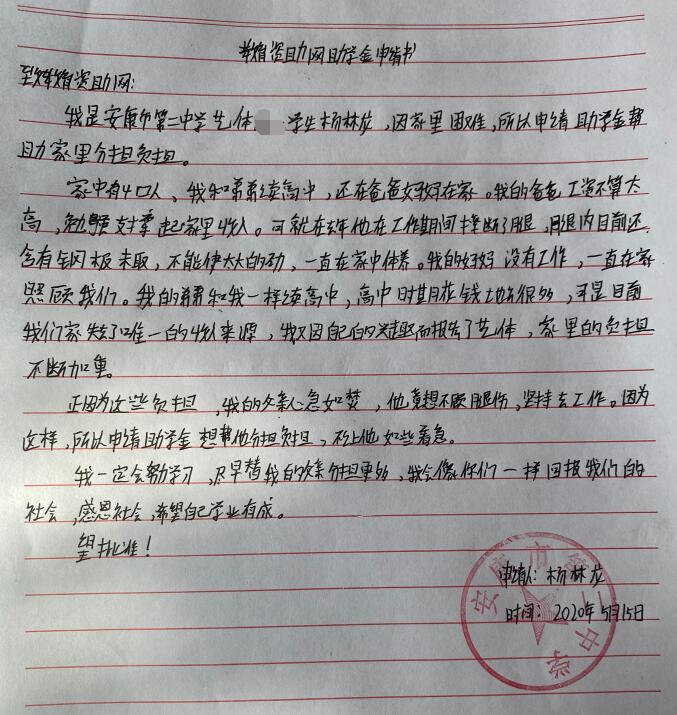 烽资助网助学金申请书
至烽资助网:
我是安康市第二中学艺体 学生杨林龙,因家里困难,所以申请助学金帮
助家里分担负担。
家中有4口人,我和弟弟读高中,还在爸爸妈妈在家。我的爸爸工资不算太
高,勉强支撑起家里收入。可就在去年他在工作期间摔断了腿,腿内目前还
含有钢板未取,不能使太大的劲,一直在家中休养。我的妈妈没有工作,一直在家
照顾我们。我的弟弟和我一样读高中,高中时期花钱地方很多,可是目前
我们家失去了唯一的收入来源,我又因自己的兴趣而报告了艺体,家里的负担
不断加重。
正因为这些负担,我的父亲心急如焚,他竟想不顾腿伤,坚持去工作。因为
这样,所以申请助学金想帮他分担负担,不让他如些着急。
我一定会努学习,尽早替我的父亲分担更多,我会像你们一样回报我们的
社会,感恩社会,希望自己学业有成。
望批准!
申请人:杨林龙
时间:2020年5月15日
安康市第二中学